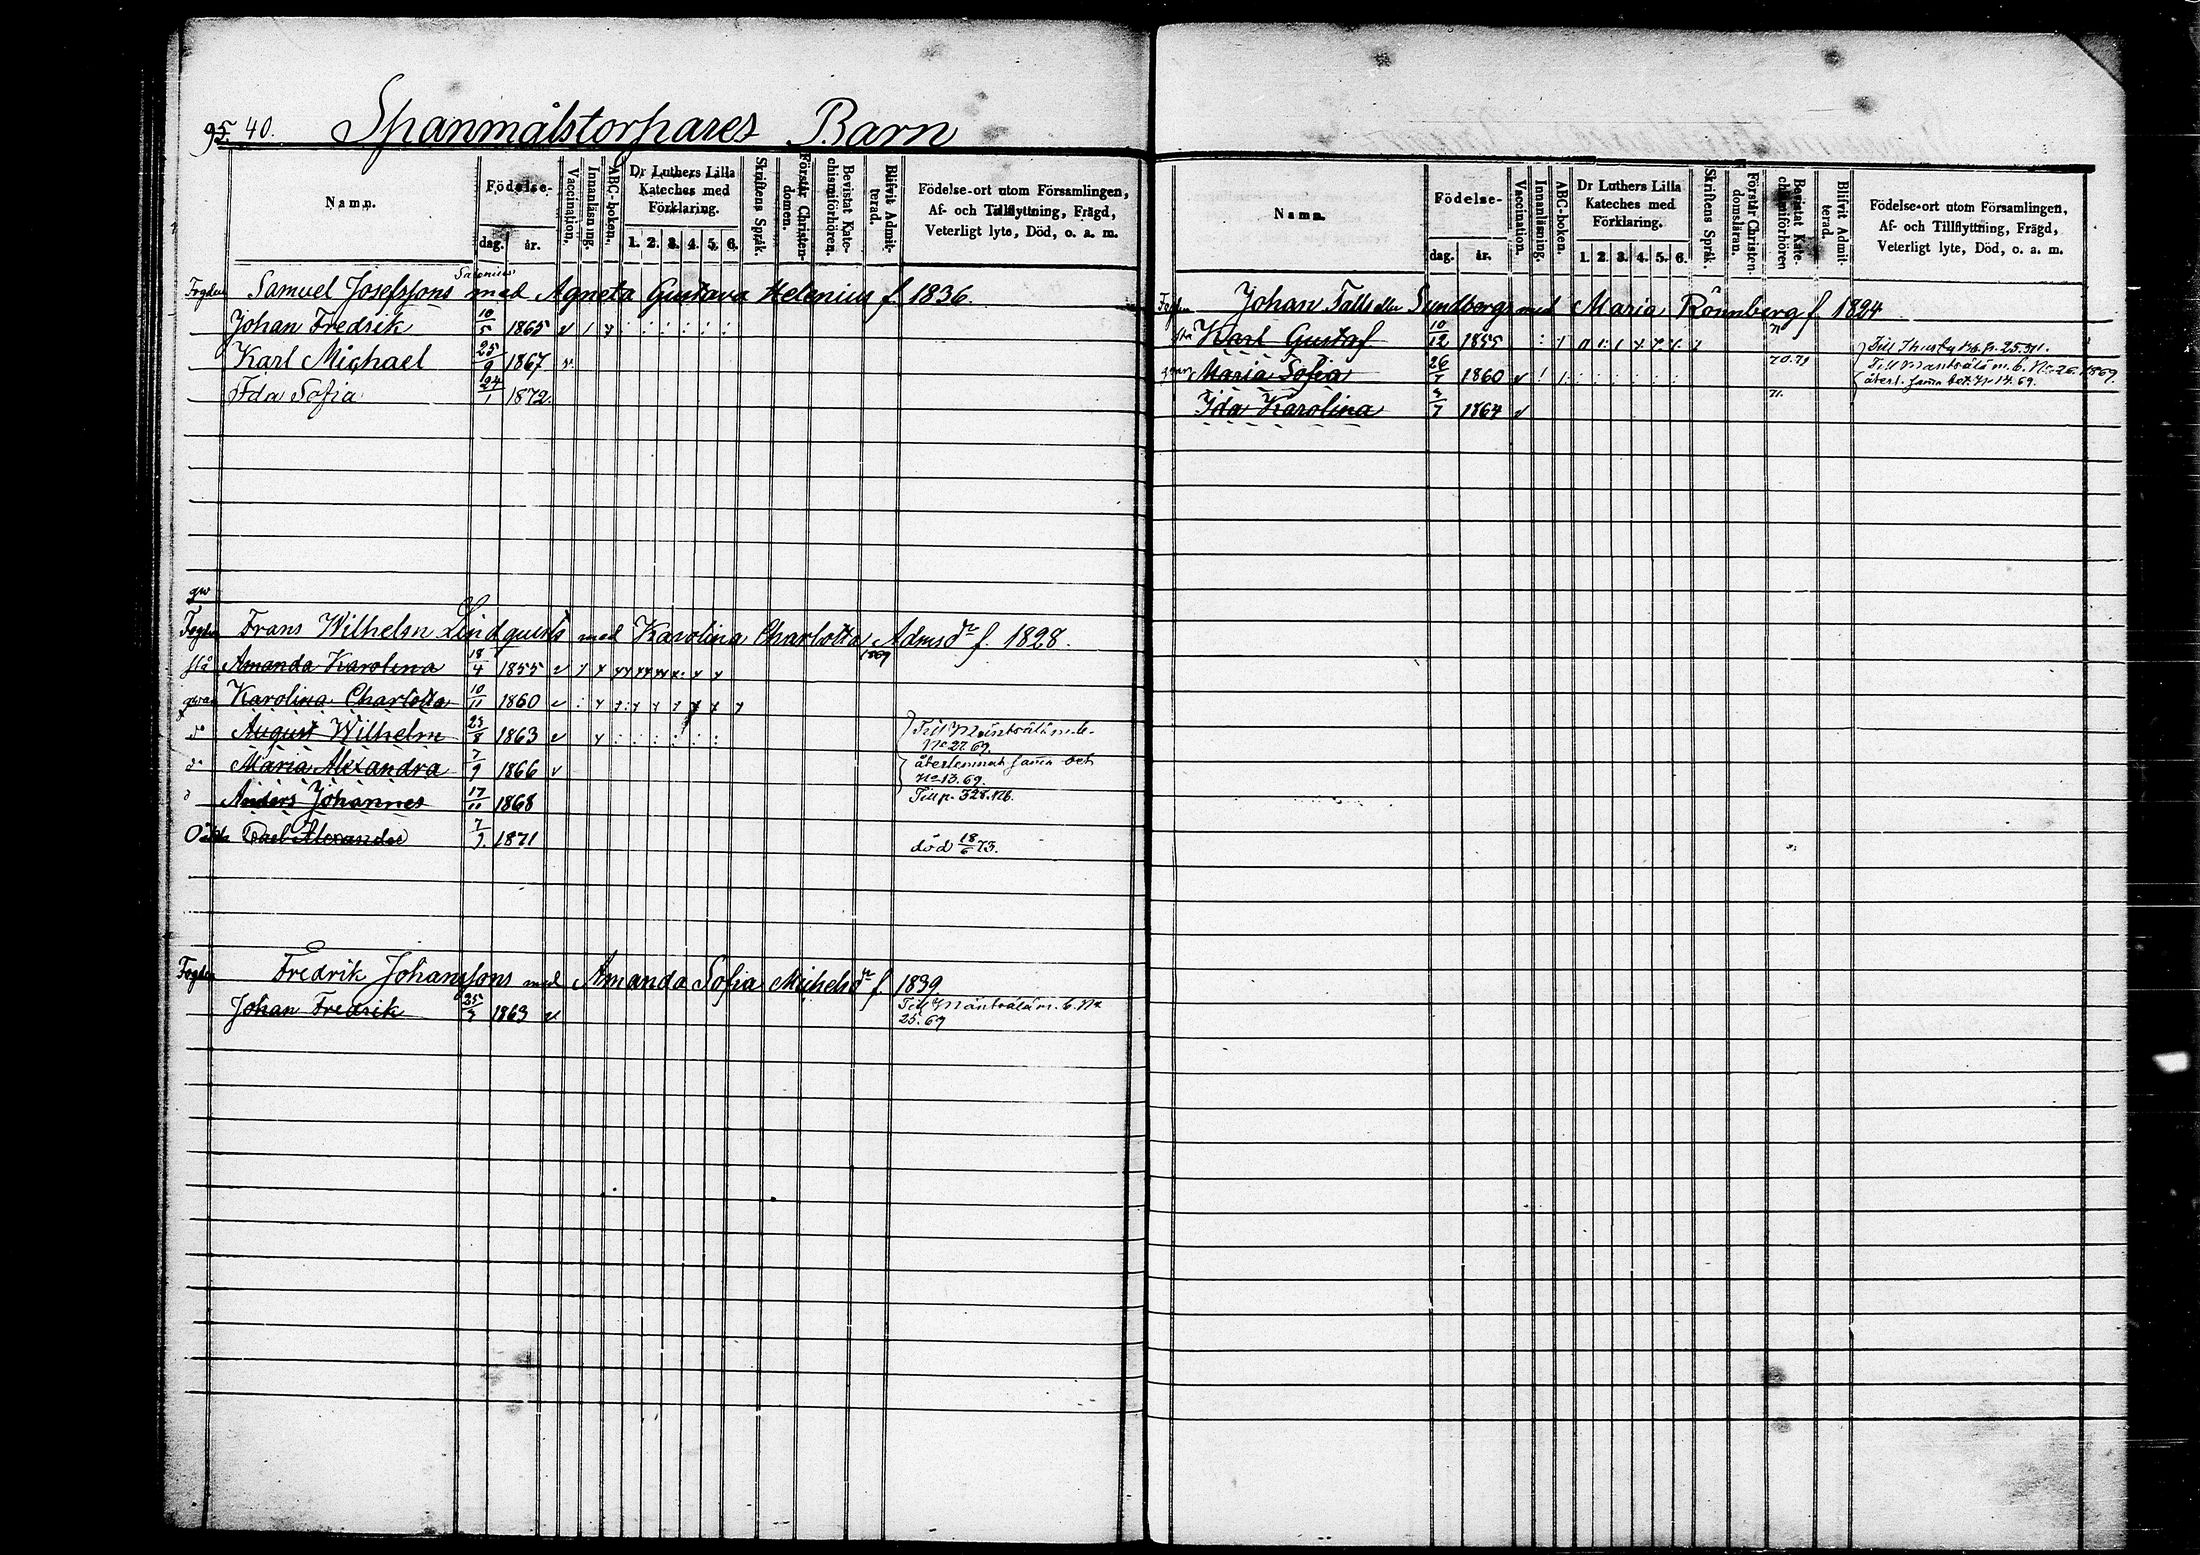 95. 40. Spanmålstorpares Barn
Namn.
Födelse-
dag. år.
Vaccination.
Innanläsning.
ABC-boken.
Dr Luthers Lilla Kateches med Förklaring.
1. 2. 3. 4. 5. 6.
Skriftens Språk.
Förstår Christendomen.
Bevistat Katechismiförhören.
Blifvit Admitterad.
Födelse-ort utom Församlingen,
Af- och Tillflyttning, Frägd,
Veterligt lyte, Död, o. a. m.
Fogden Samuel Josefssons med Agneta Gustava Helenius f. 1836.
Johan Fredrik 10/5 1865
Karl Michael 25/9 1867
Ida Sofia 24/1 1872.
Fogden Frans Wilhelm Lindqvists med Karolina Charlotta Admsdr f. 1828.
Amanda Karolina 18/4 1855 1869
Karolina Charlotta 10/11 1860
August Wilhelm 23/8 1863 Till Mäntsälä m. b.
No 27 69.
Maria Alexandra 7/9 1866 återlemnat samma bet
No 13. 69.
Anders Johannes 17/11 1868 Till p. 328. Kb.
Alexander 7/9 1871 död 18/6 73.
Fogden Fredrik Johanssons med Amanda Sofia Michelsdr f 1839.
Johan Fredrik 25/3 1863 Till Mäntsälä m. b. No
25. 69
Namn.
Födelse-
dag. år.
Vaccination.
Innanläsning.
ABC-boken.
Dr Luthers Lilla Kateches med Förklaring.
1. 2. 3. 4. 5. 6.
Skriftens Språk.
Förstår Christendomsläran.
Bevistat Katechismiförhören
Blifvit Admitterad.
Födelse-ort utom Församlingen,
Af- och Tillflyttning, Frägd,
Veterligt lyte, Död, o. a. m.
Johan Falls eller Sundborgs med Maria Rönnberg f. 1824
Karl Gustaf 10/12 1855 71
Maria Sofia 26/7 1860 70. 71 Till Mäntsälä m. b. No 26. 1869.
återl. samma bet. No 14. 69.
Ida Karolina 3/7 1864 71.